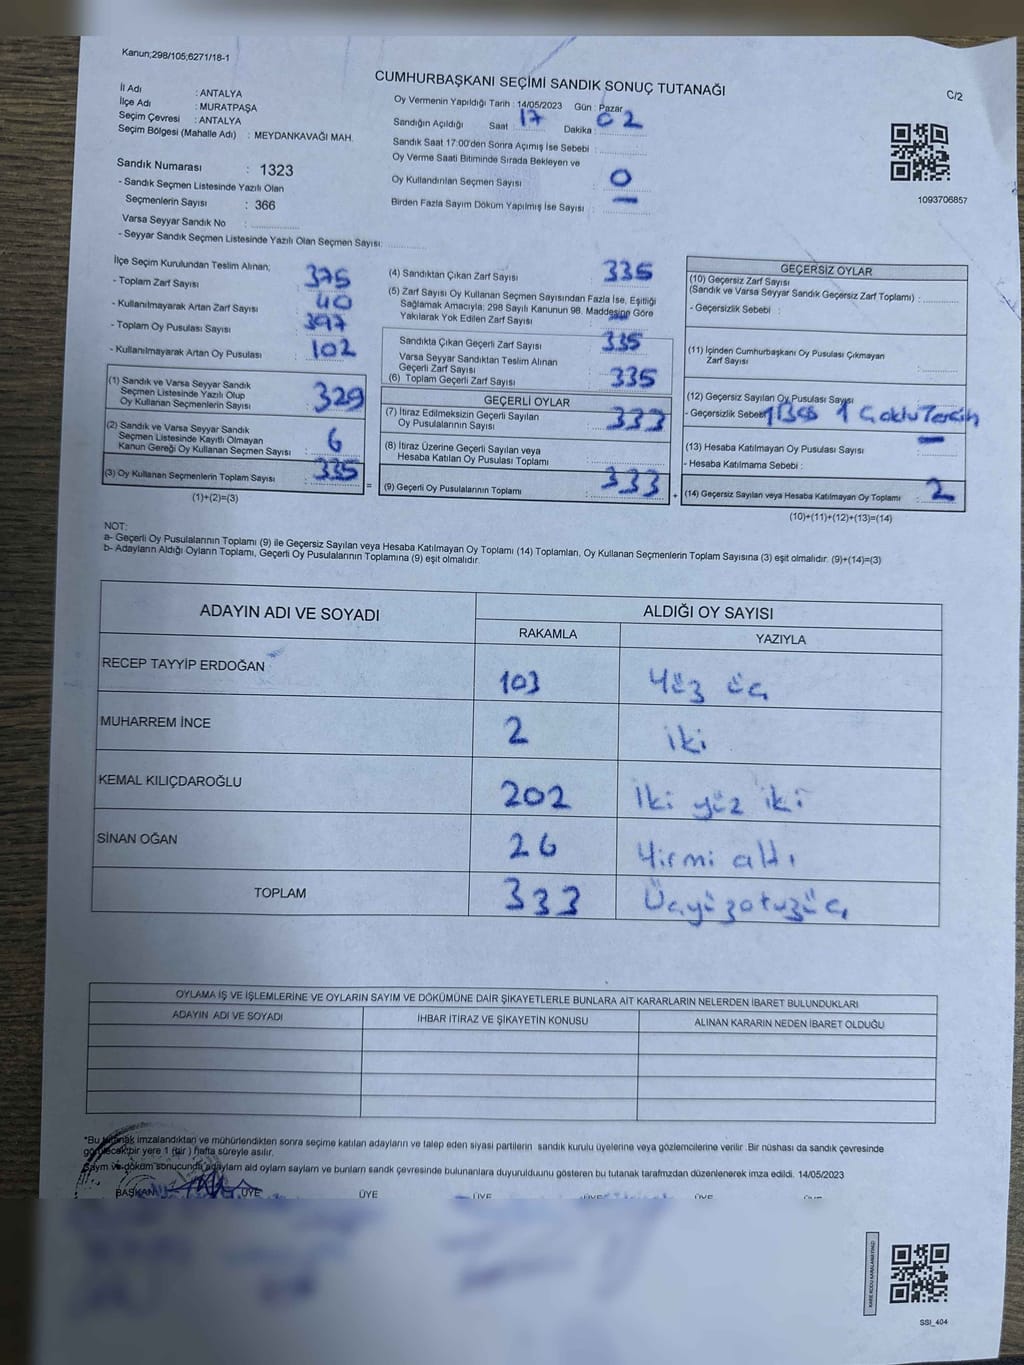 Kanun;298/105;6271/18-1
CUMHURBAŞKANI SEÇİMİ SANDIK SONUÇ TUTANAĞI
C/2
İl Adı : ANTALYA
İlçe Adı : MURATPAŞA
Seçim Çevresi : ANTALYA
Seçim Bölgesi (Mahalle Adı) : MEYDANKAVAĞI MAH.
Oy Vermenin Yapıldığı Tarih : 14/05/2023 Gün : Pazar
Sandığın Açıldığı Saat : 17 Dakika : 02
Sandık Saat 17:00'den Sonra Açımış İse Sebebi :
Oy Verme Saati Bitiminde Sırada Bekleyen ve
Oy Kullandırılan Seçmen Sayısı : 0
Birden Fazla Sayım Döküm Yapılmış İse Sayısı : —
1093706857
Sandık Numarası : 1323
- Sandık Seçmen Listesinde Yazılı Olan
Seçmenlerin Sayısı : 366
Varsa Seyyar Sandık No :
- Seyyar Sandık Seçmen Listesinde Yazılı Olan Seçmen Sayısı:
İlçe Seçim Kurulundan Teslim Alınan;
- Toplam Zarf Sayısı : 375
- Kullanılmayarak Artan Zarf Sayısı : 40
- Toplam Oy Pusulası Sayısı :
- Kullanılmayarak Artan Oy Pusulası : 102
(1) Sandık ve Varsa Seyyar Sandık
Seçmen Listesinde Yazılı Olup
Oy Kullanan Seçmenlerin Sayısı : 329
(2) Sandık ve Varsa Seyyar Sandık
Seçmen Listesinde Kayıtlı Olmayan
Kanun Gereği Oy Kullanan Seçmen Sayısı : 6
(3) Oy Kullanan Seçmenlerin Toplam Sayısı : 335
(1)+(2)=(3)
(4) Sandıktan Çıkan Zarf Sayısı : 335
(5) Zarf Sayısı Oy Kullanan Seçmen Sayısından Fazla İse, Eşitliği
Sağlamak Amacıyla; 298 Sayılı Kanunun 98. Maddesine Göre
Yakılarak Yok Edilen Zarf Sayısı : —
Sandıkta Çıkan Geçerli Zarf Sayısı : 335
Varsa Seyyar Sandıktan Teslim Alınan
Geçerli Zarf Sayısı :
(6) Toplam Geçerli Zarf Sayısı : 335
GEÇERLİ OYLAR
(7) İtiraz Edilmeksizin Geçerli Sayılan
Oy Pusulalarının Sayısı : 333
(8) İtiraz Üzerine Geçerli Sayılan veya
Hesaba Katılan Oy Pusulası Toplamı :
(9) Geçerli Oy Pusulalarının Toplamı : 333
GEÇERSİZ OYLAR
(10) Geçersiz Zarf Sayısı
(Sandık ve Varsa Seyyar Sandık Geçersiz Zarf Toplamı) :
- Geçersizlik Sebebi :
(11) İçinden Cumhurbaşkanı Oy Pusulası Çıkmayan
Zarf Sayısı :
(12) Geçersiz Sayılan Oy Pusulası Sayısı
- Geçersizlik Sebebi 1 Boş 1 Çoklu Tercih
(13) Hesaba Katılmayan Oy Pusulası Sayısı : —
- Hesaba Katılmama Sebebi :
(14) Geçersiz Sayılan veya Hesaba Katılmayan Oy Toplamı : 2
(10)+(11)+(12)+(13)=(14)
NOT:
a- Geçerli Oy Pusulalarının Toplamı (9) ile Geçersiz Sayılan veya Hesaba Katılmayan Oy Toplamı (14) Toplamları, Oy Kullanan Seçmenlerin Toplam Sayısına (3) eşit olmalıdır. (9)+(14)=(3)
b- Adayların Aldığı Oyların Toplamı, Geçerli Oy Pusulalarının Toplamına (9) eşit olmalıdır.
ADAYIN ADI VE SOYADI ALDIĞI OY SAYISI
RAKAMLA YAZIYLA
RECEP TAYYİP ERDOĞAN 103 Yüz üç
MUHARREM İNCE 2 iki
KEMAL KILIÇDAROĞLU 202 İki yüz iki
SİNAN OĞAN 26 Yirmi altı
TOPLAM 333 Üçyüzotuzüç
OYLAMA İŞ VE İŞLEMLERİNE VE OYLARIN SAYIM VE DÖKÜMÜNE DAİR ŞİKAYETLERLE BUNLARA AİT KARARLARIN NELERDEN İBARET BULUNDUKLARI
ADAYIN ADI VE SOYADI İHBAR İTİRAZ VE ŞİKAYETİN KONUSU ALINAN KARARIN NEDEN İBARET OLDUĞU
*Bu tutanak imzalandıktan ve mühürlendikten sonra seçime katılan adayların ve talep eden siyasi partilerin sandık kurulu üyelerine veya gözlemcilerine verilir. Bir nüshası da sandık çevresinde
görülecek bir yere 1 (bir) hafta süreyle asılır.
Sayım ve döküm sonucunda adayların ald oyların sayların ve bunların sandık çevresinde bulunanlara duyurulduunu gösteren bu tutanak tarafmzdan düzenlenerek imza edildi. 14/05/2023
BAŞKAN ÜYE ÜYE ÜYE ÜYE ÜYE
SSİ_404